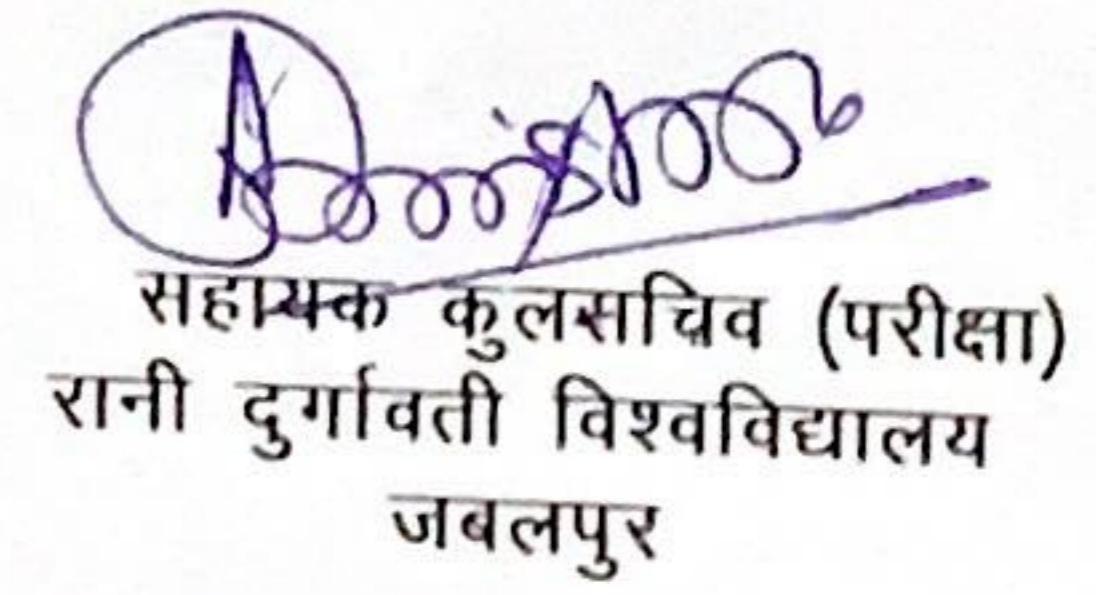 सहायक कुलसचिव (परीक्षा)
रानी दुर्गावती विश्वविद्यालय
जबलपुर